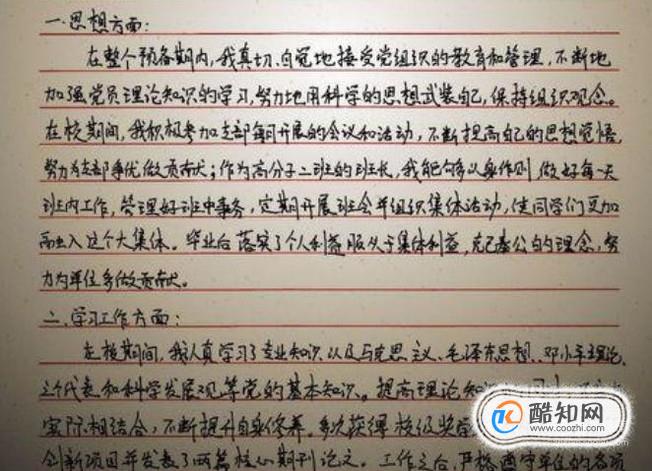 一.思想方面:
在整个预备期内,我真切、自觉地接受党组织的教育和管理,不断地
加强党员理论知识的学习,努力地用科学的思想武装自己,保持组织观念。
在校期间,我积极参加支部每月开展的会议和活动,不断提高自己的思想觉悟,
努力为支部争优做贡献;作为高分子二班的班长,我能够以身作则做好每一天
班内工作,管理好班中事务,定期开展班会并组织集体活动,使同学们更加
融入这个大集体。毕业后落实了个人利益服从于集体利益,克己奉公的理念,努
力为单位多做贡献。
二.学习工作方面:
在校期间,我认真学习了专业知识以及马克思主义、毛泽东思想、邓小平理论、
三个代表和科学发展观等党的基本知识。提高理论知识
实际相结合,不断提升自身修养。多次获得校级奖学
创新项目并发表了两篇核心期刊论文。工作之后严格遵守单位的各项
酷知网
www.coozhi.com